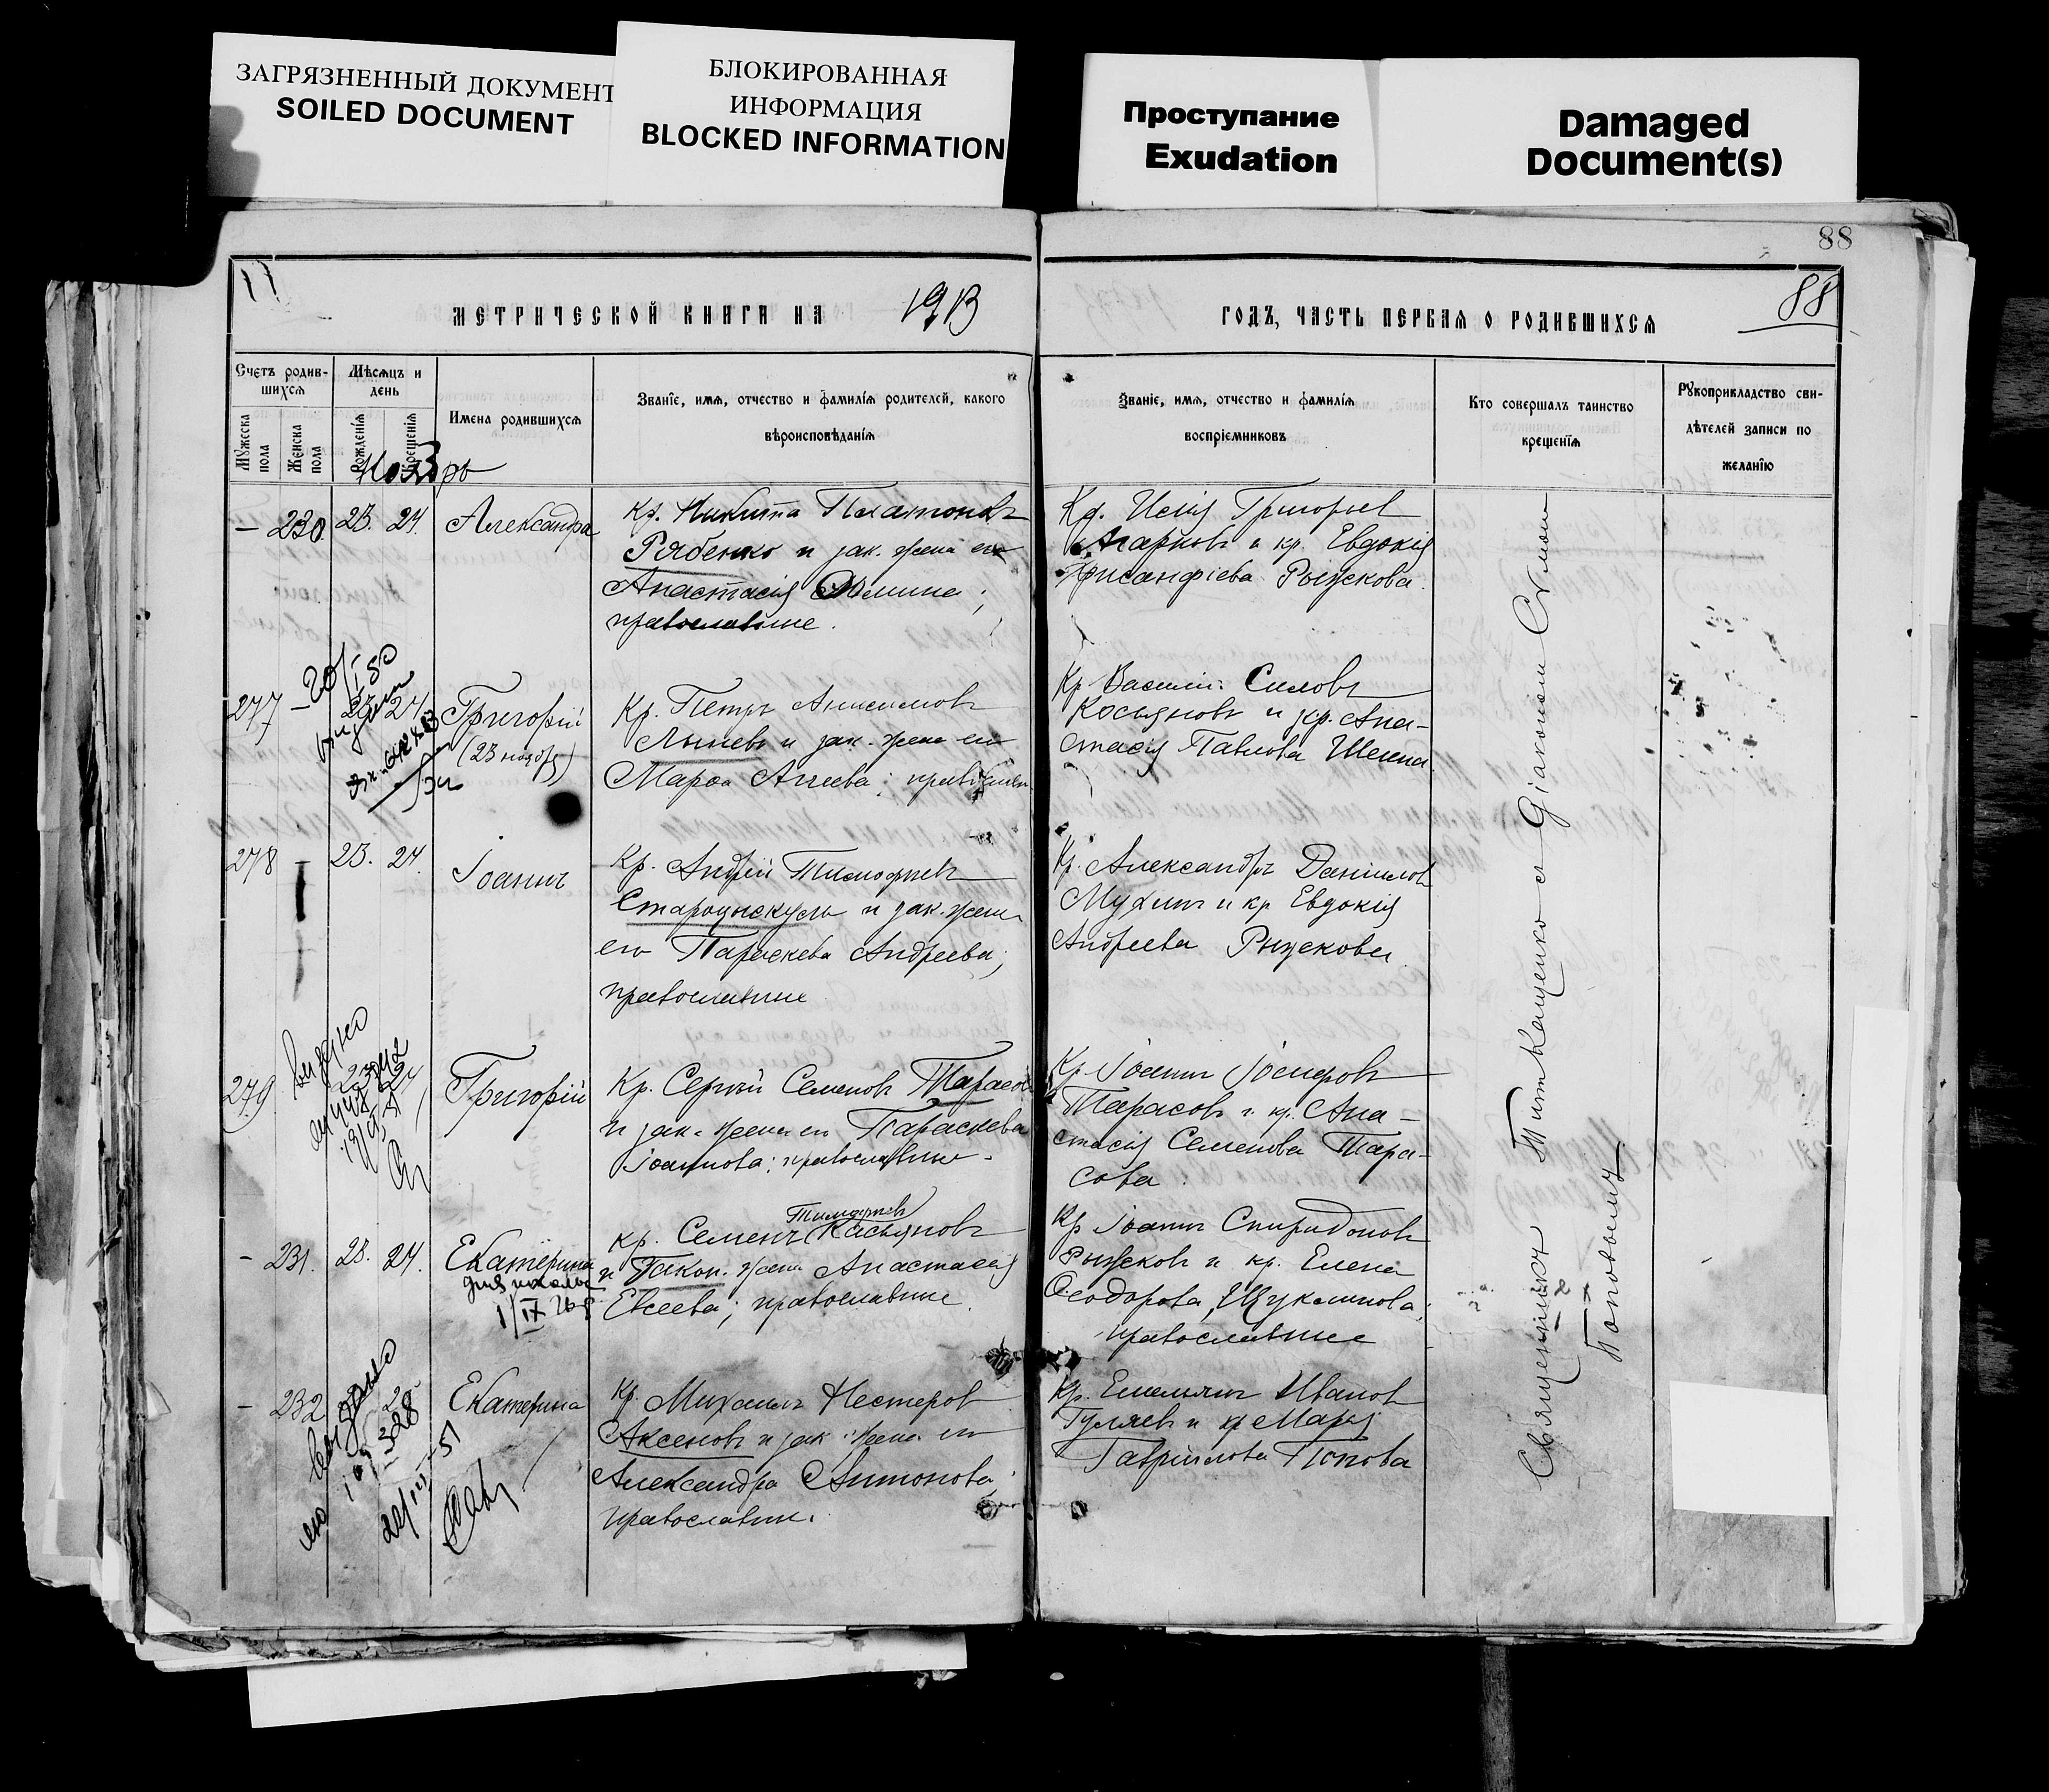 ЗАГРЯЗНЕННЫЙ ДОКУМЕНТ
SOILED DOCUMENT
БЛОКИРОВАННАЯ
ИНФОРМАЦИЯ
BLOCKED INFORMATION
Проступание
Exudation
Damaged
Document(s)
88
88
МЕТРИЧЕСКОЙ КНИГИ НА 1913
ГОДЪ, ЧАСТЬ ПЕРВАЯ О РОДИВШИХСЯ
Счетъ родив-
шихся
Мужеска пола
Женска пола
Мѣсяцъ и
день
Рожденія
Крещенія
Имена родившихся
Званіе, имя, отчество и фамилія родителей, какого
вѣроисповѣданія
Званіе, имя, отчество и фамилія
воспріемниковъ
Кто совершалъ таинство
крещенія
Рукоприкладство сви-
дѣтелей записи по
желанію
Ноябрь
– 230. 23. 24. Александра
Кр. Никита Платоновъ
Рябенко и зак. жена его
Анастасія Ѳомина;
православные.
Кр. Григорьев
и кр. Евдокія
Хрисанфіева Рыжкова.
277 – 23 24 Григорій
(23 ноября)
Кр. Петръ Анисимовъ
и зак. жена его
Марѳа Агеева; православн.
Кр. Василій Силовъ
Косьяновъ и кр. Ана-
стасія Павлова Шеина
278 – 23. 24. Іоаннъ
Кр. Андрей Тимофѣевъ
и зак. жена
его Параскева Андреева;
православные
Кр. Александръ Даніиловъ
Мухинъ и кр Евдокія
Андреева Рыжкова
279 Григорій
Кр. Сергѣй Семеновъ Тарасов
и зак. жена его Параскева
Іоаннова; православные.
Кр. Іоаннъ Іосифовъ
Тарасовъ и кр. Ана-
стасія Семенова Тара-
сова.
– 231. 23. 24. Екатерина
для школы
1/IX 26
Тимофѣевъ
кр. Семенъ Касьяновъ
и закон. жена Анастасія
Евсеева; православные.
Кр Іоаннъ Спиридоновъ
Рыжковъ и кр. Елена
Ѳеодорова Щукашнова
православные
– 232 Екатерина
выдано
Кр. Михаилъ Нестеров
Аксеновъ и зак. жена его
Александра Антонова;
православн.
Кр. Емельянъ Иванов
Гуляевъ и кр Марія
Гавриилова Попова
Священникъ Титъ Кащенко съ діакономъ Сѵмеон
Поповымъ